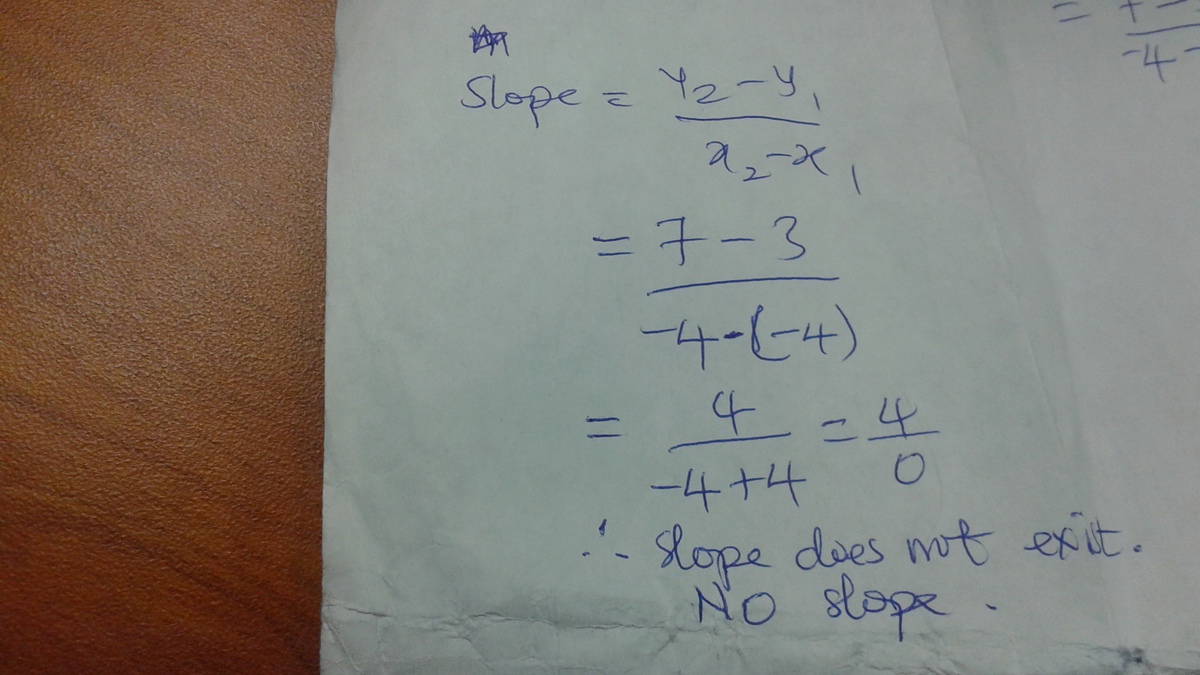 Slope = y₂ - y₁
x₂ - x₁
= 7 - 3
-4 - (-4)
= 4 = 4
-4 + 4 0
∴ slope does not exit.
NO slope.
= + -
-4 -